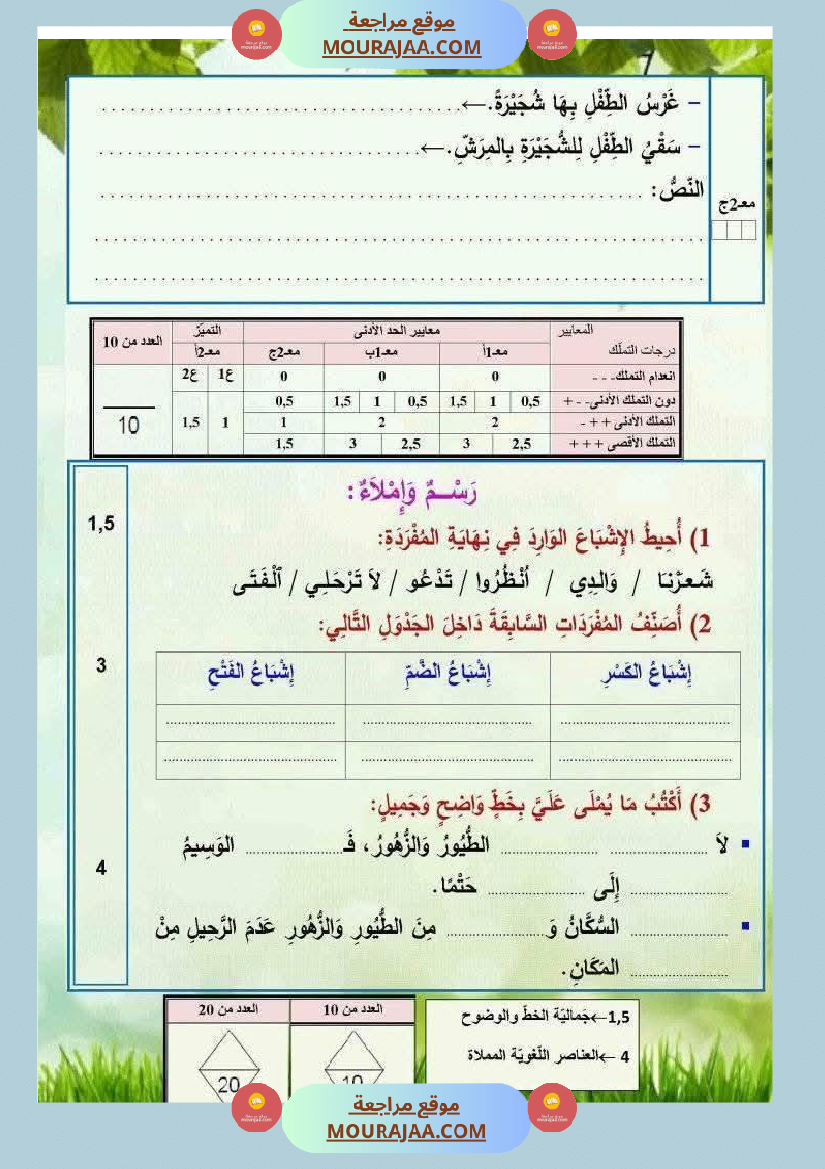 موقع مراجعة
MOURAJAA.COM
– غَرْسُ الطِّفْلِ بِهَا شُجَيْرَةً.←
– سَقْيُ الطِّفْلِ لِلشُّجَيْرَةِ بِالمِرَشِّ.←
النّصُّ:
معـ2ج
المعايير
درجات التملّك
معايير الحد الأدنى
التميّز
العدد من 10
معـ1أ معـ1ب معـ2ج معـ2أ
انعدام التملك- - - 0 0 0 ع1 ع2
دون التملك الأدنى- - + 0,5 1 1,5 0,5 1 1,5 0,5
التملك الأدنى + + - 2 2 1 1 1,5
التملك الأقصى + + + 2,5 3 2,5 3 1,5
10
رَسْـمٌ وَإِمْلاَءٌ :
1,5
1) أُحِيطُ الإِشْبَاعَ الوَارِدَ فِي نِهَايَةِ المُفْرَدَةِ:
شَعَرْنَا / وَالِدِي / اُنْظُرُوا / تَدْعُو / لاَ تَرْحَلِي / اَلْفَتَى
2) أُصَنِّفُ المُفْرَدَاتِ السَّابِقَةَ دَاخِلَ الجَدْوَلِ التَّالِي:
3
إِشْبَاعُ الكَسْرِ إِشْبَاعُ الضَّمِّ إِشْبَاعُ الفَتْحِ
3) أَكْتُبُ مَا يُمْلَى عَلَيَّ بِخَطٍّ وَاضِحٍ وَجَمِيلٍ:
لاَ ........ ........ الطُّيُورُ وَالزُّهُورُ، فَـ........ الوَسِيمُ
4
........ إِلَى ........ حَتْمًا.
........ السُّكَّانُ وَ........ مِنَ الطُّيُورِ وَالزُّهُورِ عَدَمَ الرَّحِيلِ مِنْ
........ المَكَانِ.
1,5←جَماليّة الخطّ والوضوح
4 ←العناصر اللّغويّة المملاة
العدد من 10 العدد من 20
10 20
موقع مراجعة
MOURAJAA.COM